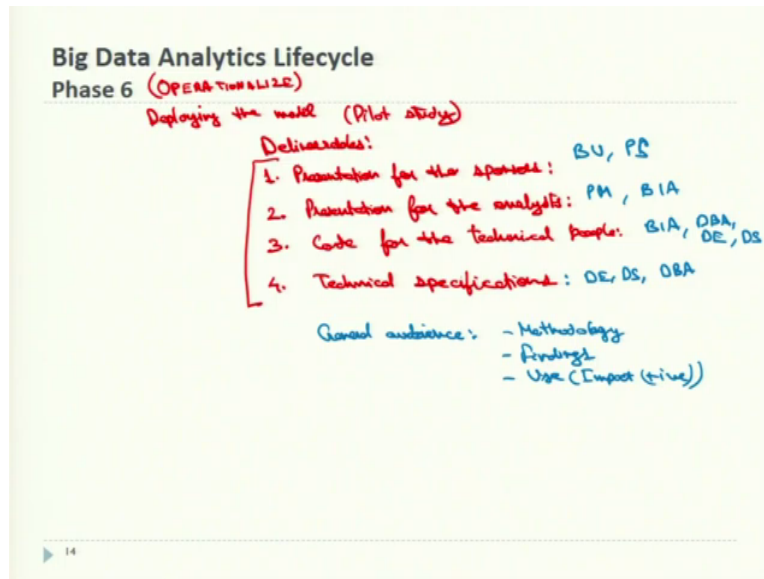 Big Data Analytics Lifecycle
Phase 6 (OPERATIONALIZE)
Deploying the model (Pilot study)
Deliverables:
1. Presentation for the sponsors: BU, PS
2. Presentation for the analysts: PM, BIA
3. Code for the technical people: BIA, DBA, DE, DS
4. Technical specifications: DE, DS, DBA
General audience: - Methodology
- Findings
- Use (Impact (+ive))
14